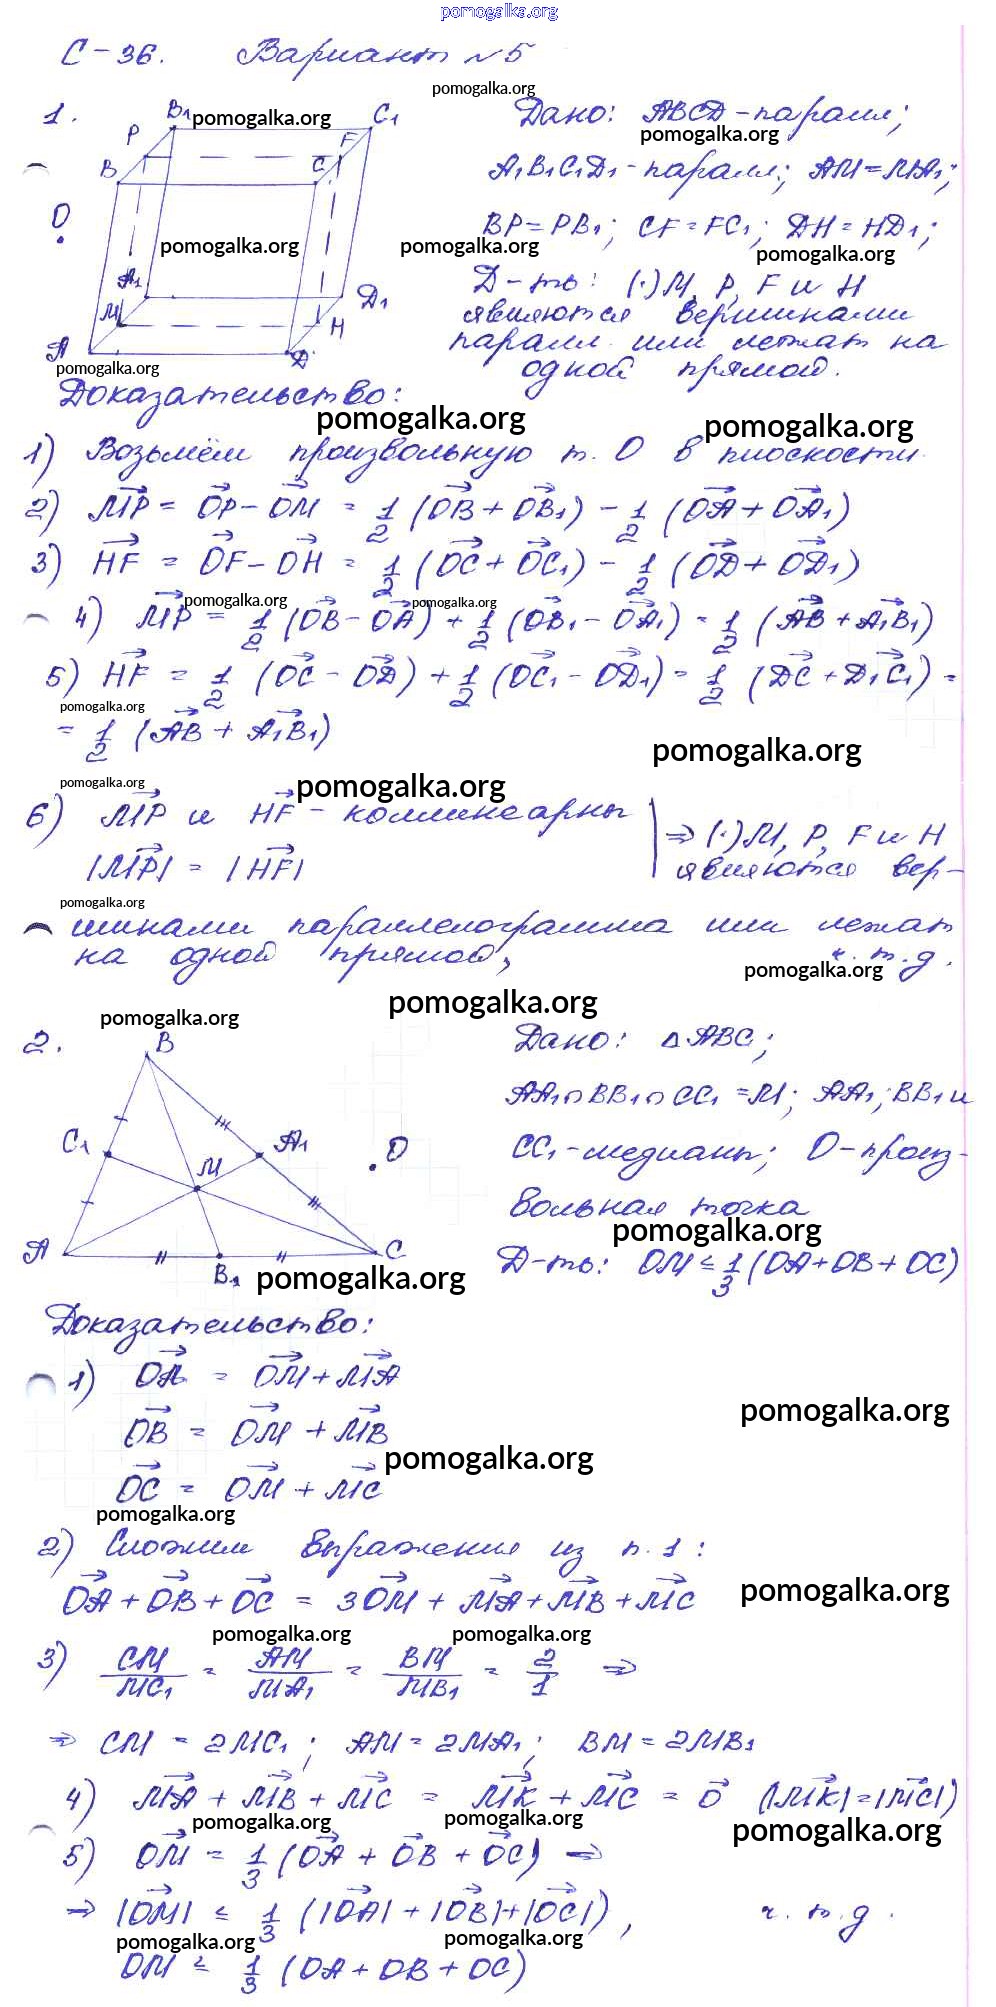 pomogalka.org
С-36. Вариант №5
pomogalka.org
1.
B1 pomogalka.org C1
P F
B C
O
pomogalka.org
A1 D1
M H
A D
pomogalka.org
Дано: ABCD-паралл;
pomogalka.org
A1B1C1D1-паралл; AM=MA1;
BP=PB1; CF=FC1; DH=HD1;
pomogalka.org pomogalka.org
Д-ть: (·)M, P, F и H
являются вершинами
паралл. или лежат на
одной прямой.
Доказательство:
pomogalka.org pomogalka.org
1) Возьмём произвольную т. O в плоскости.
2) MP = OP-OM = 1/2 (OB+OB1) - 1/2 (OA+OA1)
3) HF = OF-OH = 1/2 (OC+OC1) - 1/2 (OD+OD1)
pomogalka.org pomogalka.org
4) MP = 1/2 (OB-OA) + 1/2 (OB1-OA1) = 1/2 (AB+A1B1)
5) HF = 1/2 (OC-OD) + 1/2 (OC1-OD1) = 1/2 (DC+D1C1) =
pomogalka.org
= 1/2 (AB+A1B1)
pomogalka.org
pomogalka.org pomogalka.org
6) MP и HF - коллинеарны
|MP| = |HF|
⇒ (·)M, P, F и H
являются вер-
pomogalka.org
шинами параллелограмма или лежат
на одной прямой, ч.т.д.
pomogalka.org
pomogalka.org
pomogalka.org
2.
B
C1 A1
M O
A C
B1 pomogalka.org
Дано: △ABC;
AA1∩BB1∩CC1=M; AA1; BB1 и
CC1-медианы; O-произ-
вольная точка
pomogalka.org
Д-ть: OM ≤ 1/3 (OA+OB+OC)
Доказательство:
1) OA = OM+MA
pomogalka.org
OB = OM+MB
pomogalka.org
OC = OM+MC
pomogalka.org
2) Сложим выражения из п.1:
pomogalka.org
OA+OB+OC = 3OM+MA+MB+MC
pomogalka.org pomogalka.org
3) CM/MC1 = AM/MA1 = BM/MB1 = 2/1 ⇒
⇒ CM = 2MC1; AM = 2MA1; BM = 2MB1
4) MA+MB+MC = MK+MC = 0 (|MK|=|MC|)
pomogalka.org pomogalka.org pomogalka.org
5) OM = 1/3 (OA+OB+OC) ⇒
⇒ |OM| ≤ 1/3 (|OA|+|OB|+|OC|), ч.т.д.
pomogalka.org pomogalka.org
OM ≤ 1/3 (OA+OB+OC)